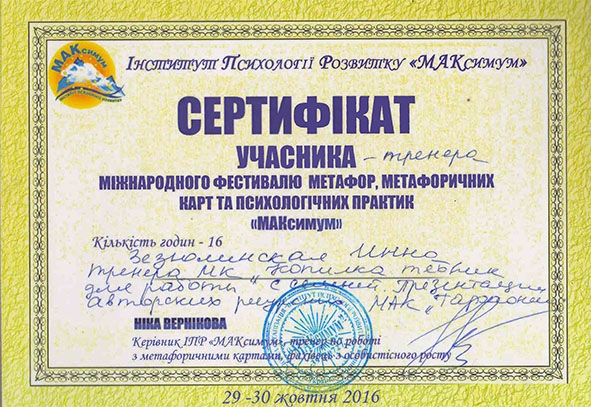 МАКсимум
Інститут Психології Розвитку «МАКсимум»
СЕРТИФІКАТ
УЧАСНИКА - тренера
МІЖНАРОДНОГО ФЕСТИВАЛЮ МЕТАФОР, МЕТАФОРИЧНИХ
КАРТ ТА ПСИХОЛОГІЧНИХ ПРАКТИК
«МАКсимум»
Кількість годин - 16
Инна
тренера МК „Копилка техник
для работы с семьей. Презентация
авторских МАК
НІКА ВЕРНІКОВА
Керівник ІПР «МАКсимум», тренер по роботі
з метафоричними картами, фахівець з особистісного росту
29 -30 жовтня 2016